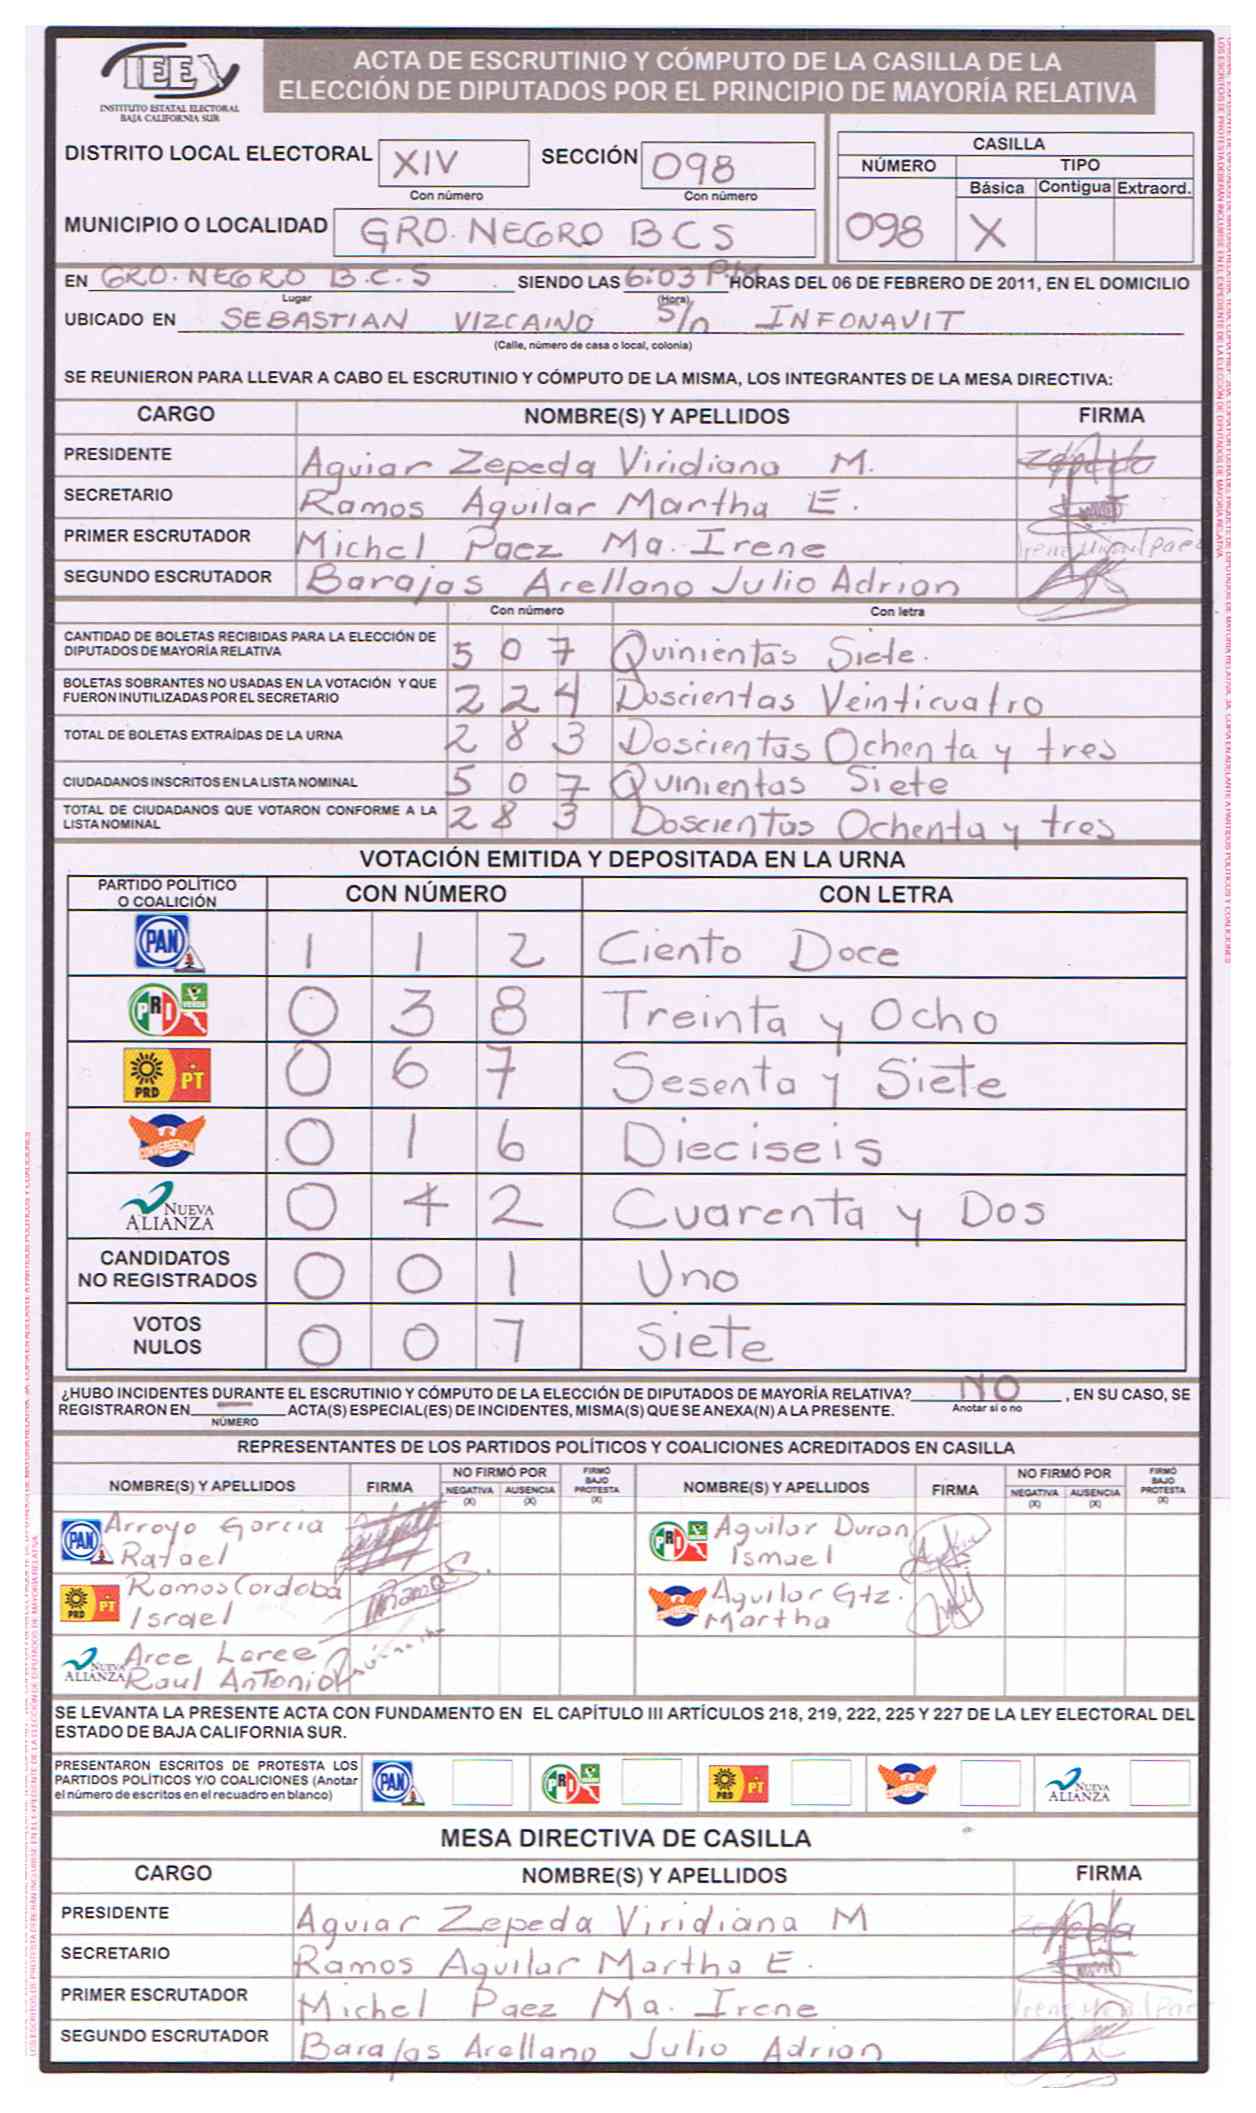 IEE
INSTITUTO ESTATAL ELECTORAL
BAJA CALIFORNIA SUR
ACTA DE ESCRUTINIO Y CÓMPUTO DE LA CASILLA DE LA
ELECCIÓN DE DIPUTADOS POR EL PRINCIPIO DE MAYORÍA RELATIVA
DISTRITO LOCAL ELECTORAL XIV SECCIÓN 098
Con número Con número
MUNICIPIO O LOCALIDAD GRO. NEGRO B C S
CASILLA
NÚMERO TIPO
Básica Contigua Extraord.
098 X
EN GRO. NEGRO B.C.S SIENDO LAS 6:03 P.M HORAS DEL 06 DE FEBRERO DE 2011, EN EL DOMICILIO
Lugar (Hora)
UBICADO EN SEBASTIAN VIZCAINO S/n INFONAVIT
(Calle, número de casa o local, colonia)
SE REUNIERON PARA LLEVAR A CABO EL ESCRUTINIO Y CÓMPUTO DE LA MISMA, LOS INTEGRANTES DE LA MESA DIRECTIVA:
CARGO NOMBRE(S) Y APELLIDOS FIRMA
PRESIDENTE Aguiar Zepeda Viridiana M. Zepeda
SECRETARIO Ramos Aguilar Martha E.
PRIMER ESCRUTADOR Michel Paez Ma. Irene
SEGUNDO ESCRUTADOR Barajas Arellano Julio Adrian
Con número Con letra
CANTIDAD DE BOLETAS RECIBIDAS PARA LA ELECCIÓN DE
DIPUTADOS DE MAYORÍA RELATIVA 5 0 7 Quinientas Siete.
BOLETAS SOBRANTES NO USADAS EN LA VOTACIÓN Y QUE
FUERON INUTILIZADAS POR EL SECRETARIO 2 2 4 Doscientas Veinticuatro
TOTAL DE BOLETAS EXTRAÍDAS DE LA URNA 2 8 3 Doscientas Ochenta y tres
CIUDADANOS INSCRITOS EN LA LISTA NOMINAL 5 0 7 Quinientas Siete
TOTAL DE CIUDADANOS QUE VOTARON CONFORME A LA
LISTA NOMINAL 2 8 3 Doscientas Ochenta y tres
VOTACIÓN EMITIDA Y DEPOSITADA EN LA URNA
PARTIDO POLÍTICO
O COALICIÓN CON NÚMERO CON LETRA
PAN 1 1 2 Ciento Doce
PRI VERDE 0 3 8 Treinta y Ocho
PRD PT 0 6 7 Sesenta y Siete
CONVERGENCIA 0 1 6 Dieciseis
NUEVA ALIANZA 0 4 2 Cuarenta y Dos
CANDIDATOS
NO REGISTRADOS 0 0 1 Uno
VOTOS
NULOS 0 0 7 Siete
¿HUBO INCIDENTES DURANTE EL ESCRUTINIO Y CÓMPUTO DE LA ELECCIÓN DE DIPUTADOS DE MAYORÍA RELATIVA? NO , EN SU CASO, SE
REGISTRARON EN — ACTA(S) ESPECIAL(ES) DE INCIDENTES, MISMA(S) QUE SE ANEXA(N) A LA PRESENTE. Anotar si o no
NÚMERO
REPRESENTANTES DE LOS PARTIDOS POLÍTICOS Y COALICIONES ACREDITADOS EN CASILLA
NOMBRE(S) Y APELLIDOS FIRMA NO FIRMÓ POR NEGATIVA (X) AUSENCIA (X) FIRMÓ BAJO PROTESTA (X) NOMBRE(S) Y APELLIDOS FIRMA NO FIRMÓ POR NEGATIVA (X) AUSENCIA (X) FIRMÓ BAJO PROTESTA (X)
PAN Arroyo Garcia PRI Aguilar Duran
Rafael Ismael
PRD PT Ramos Cordoba Aguilar Gtz.
Israel Martha
NUEVA ALIANZA Arce
Raul Antonio
SE LEVANTA LA PRESENTE ACTA CON FUNDAMENTO EN EL CAPÍTULO III ARTÍCULOS 218, 219, 222, 225 Y 227 DE LA LEY ELECTORAL DEL
ESTADO DE BAJA CALIFORNIA SUR.
PRESENTARON ESCRITOS DE PROTESTA LOS
PARTIDOS POLÍTICOS Y/O COALICIONES (Anotar
el número de escritos en el recuadro en blanco) PAN PRI PRD PT NUEVA ALIANZA
MESA DIRECTIVA DE CASILLA
CARGO NOMBRE(S) Y APELLIDOS FIRMA
PRESIDENTE Aguiar Zepeda Viridiana M Zepeda
SECRETARIO Ramos Aguilar Martha E.
PRIMER ESCRUTADOR Michel Paez Ma. Irene
SEGUNDO ESCRUTADOR Barajas Arellano Julio Adrian